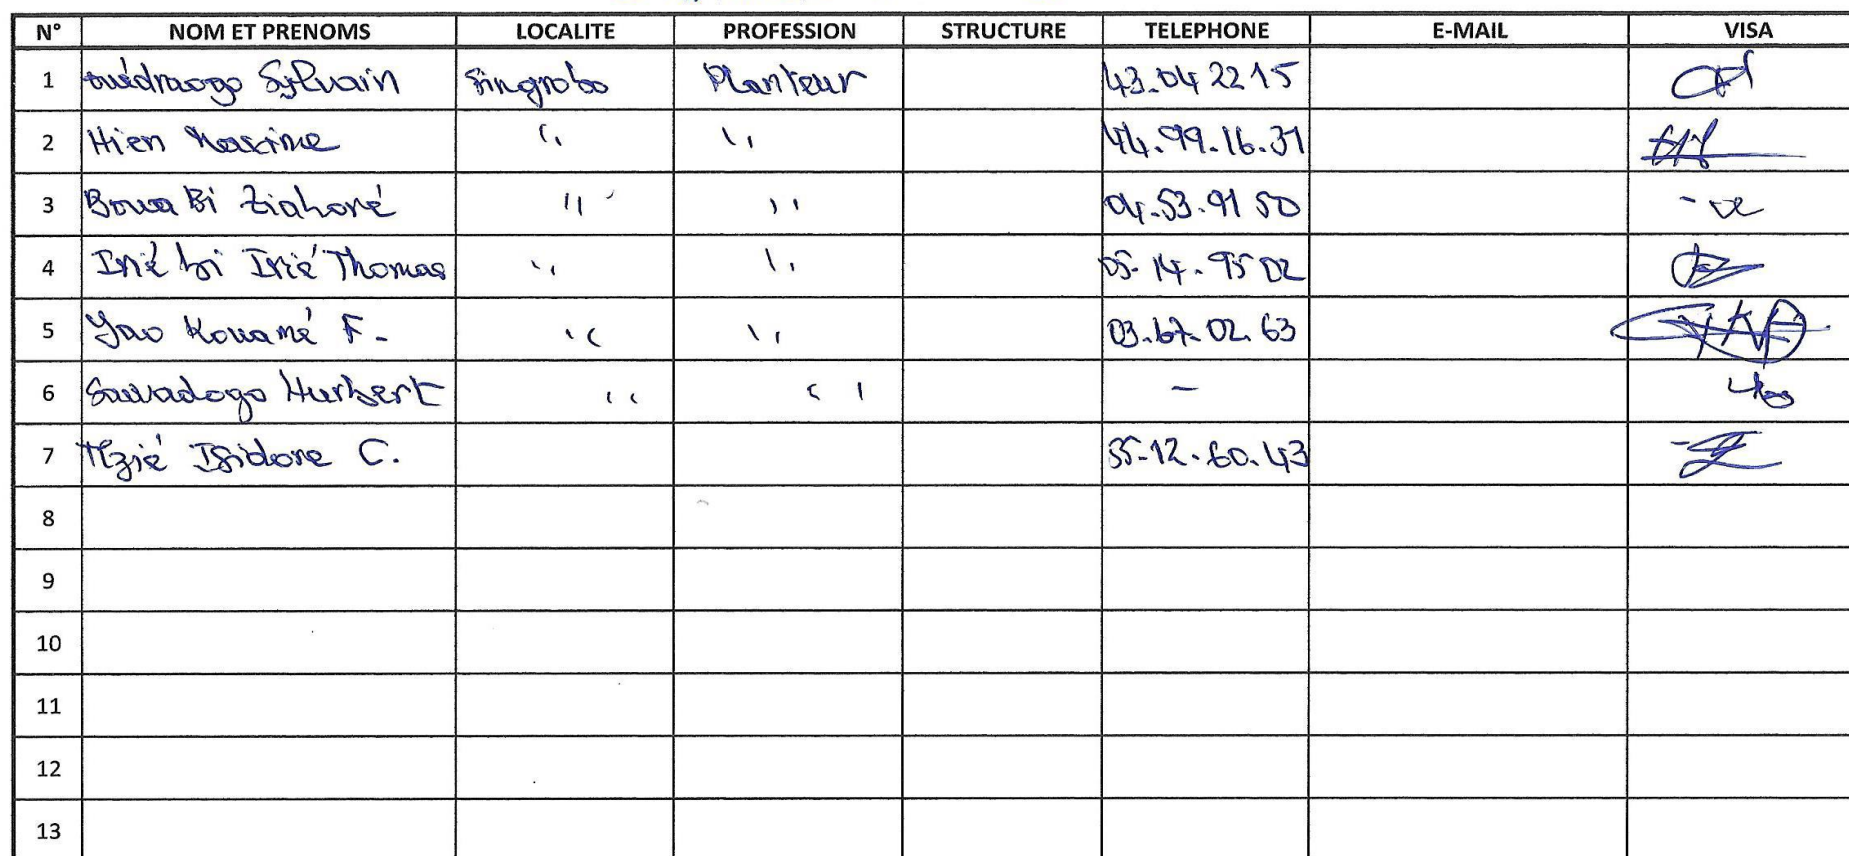 N° NOM ET PRENOMS LOCALITE PROFESSION STRUCTURE TELEPHONE E-MAIL VISA
1 Ouédraogo Sylvain Singrobo Planteur 43.04 22 15
2 Hien Maxime " " 44.99.16.31
3 Boua Bi Ziahoré " " 04.53.91 50
4 Irié bi Irié Thomas " " 05-14.-95 02
5 Yao Kouamé F. " " 03.67.02.63
6 Sawadogo Hurbert " " -
7 Isidore C. 55-12.60.43
8
9
10
11
12
13